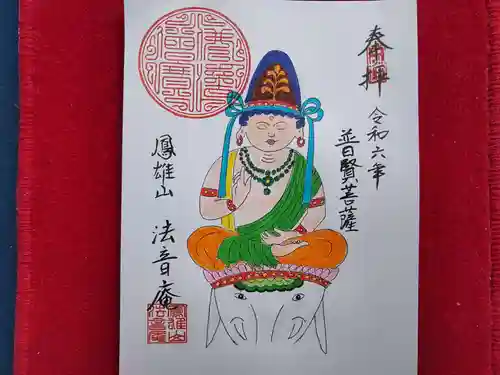 奉拝
令和六年
普賢菩薩
鳳雄山
法音庵